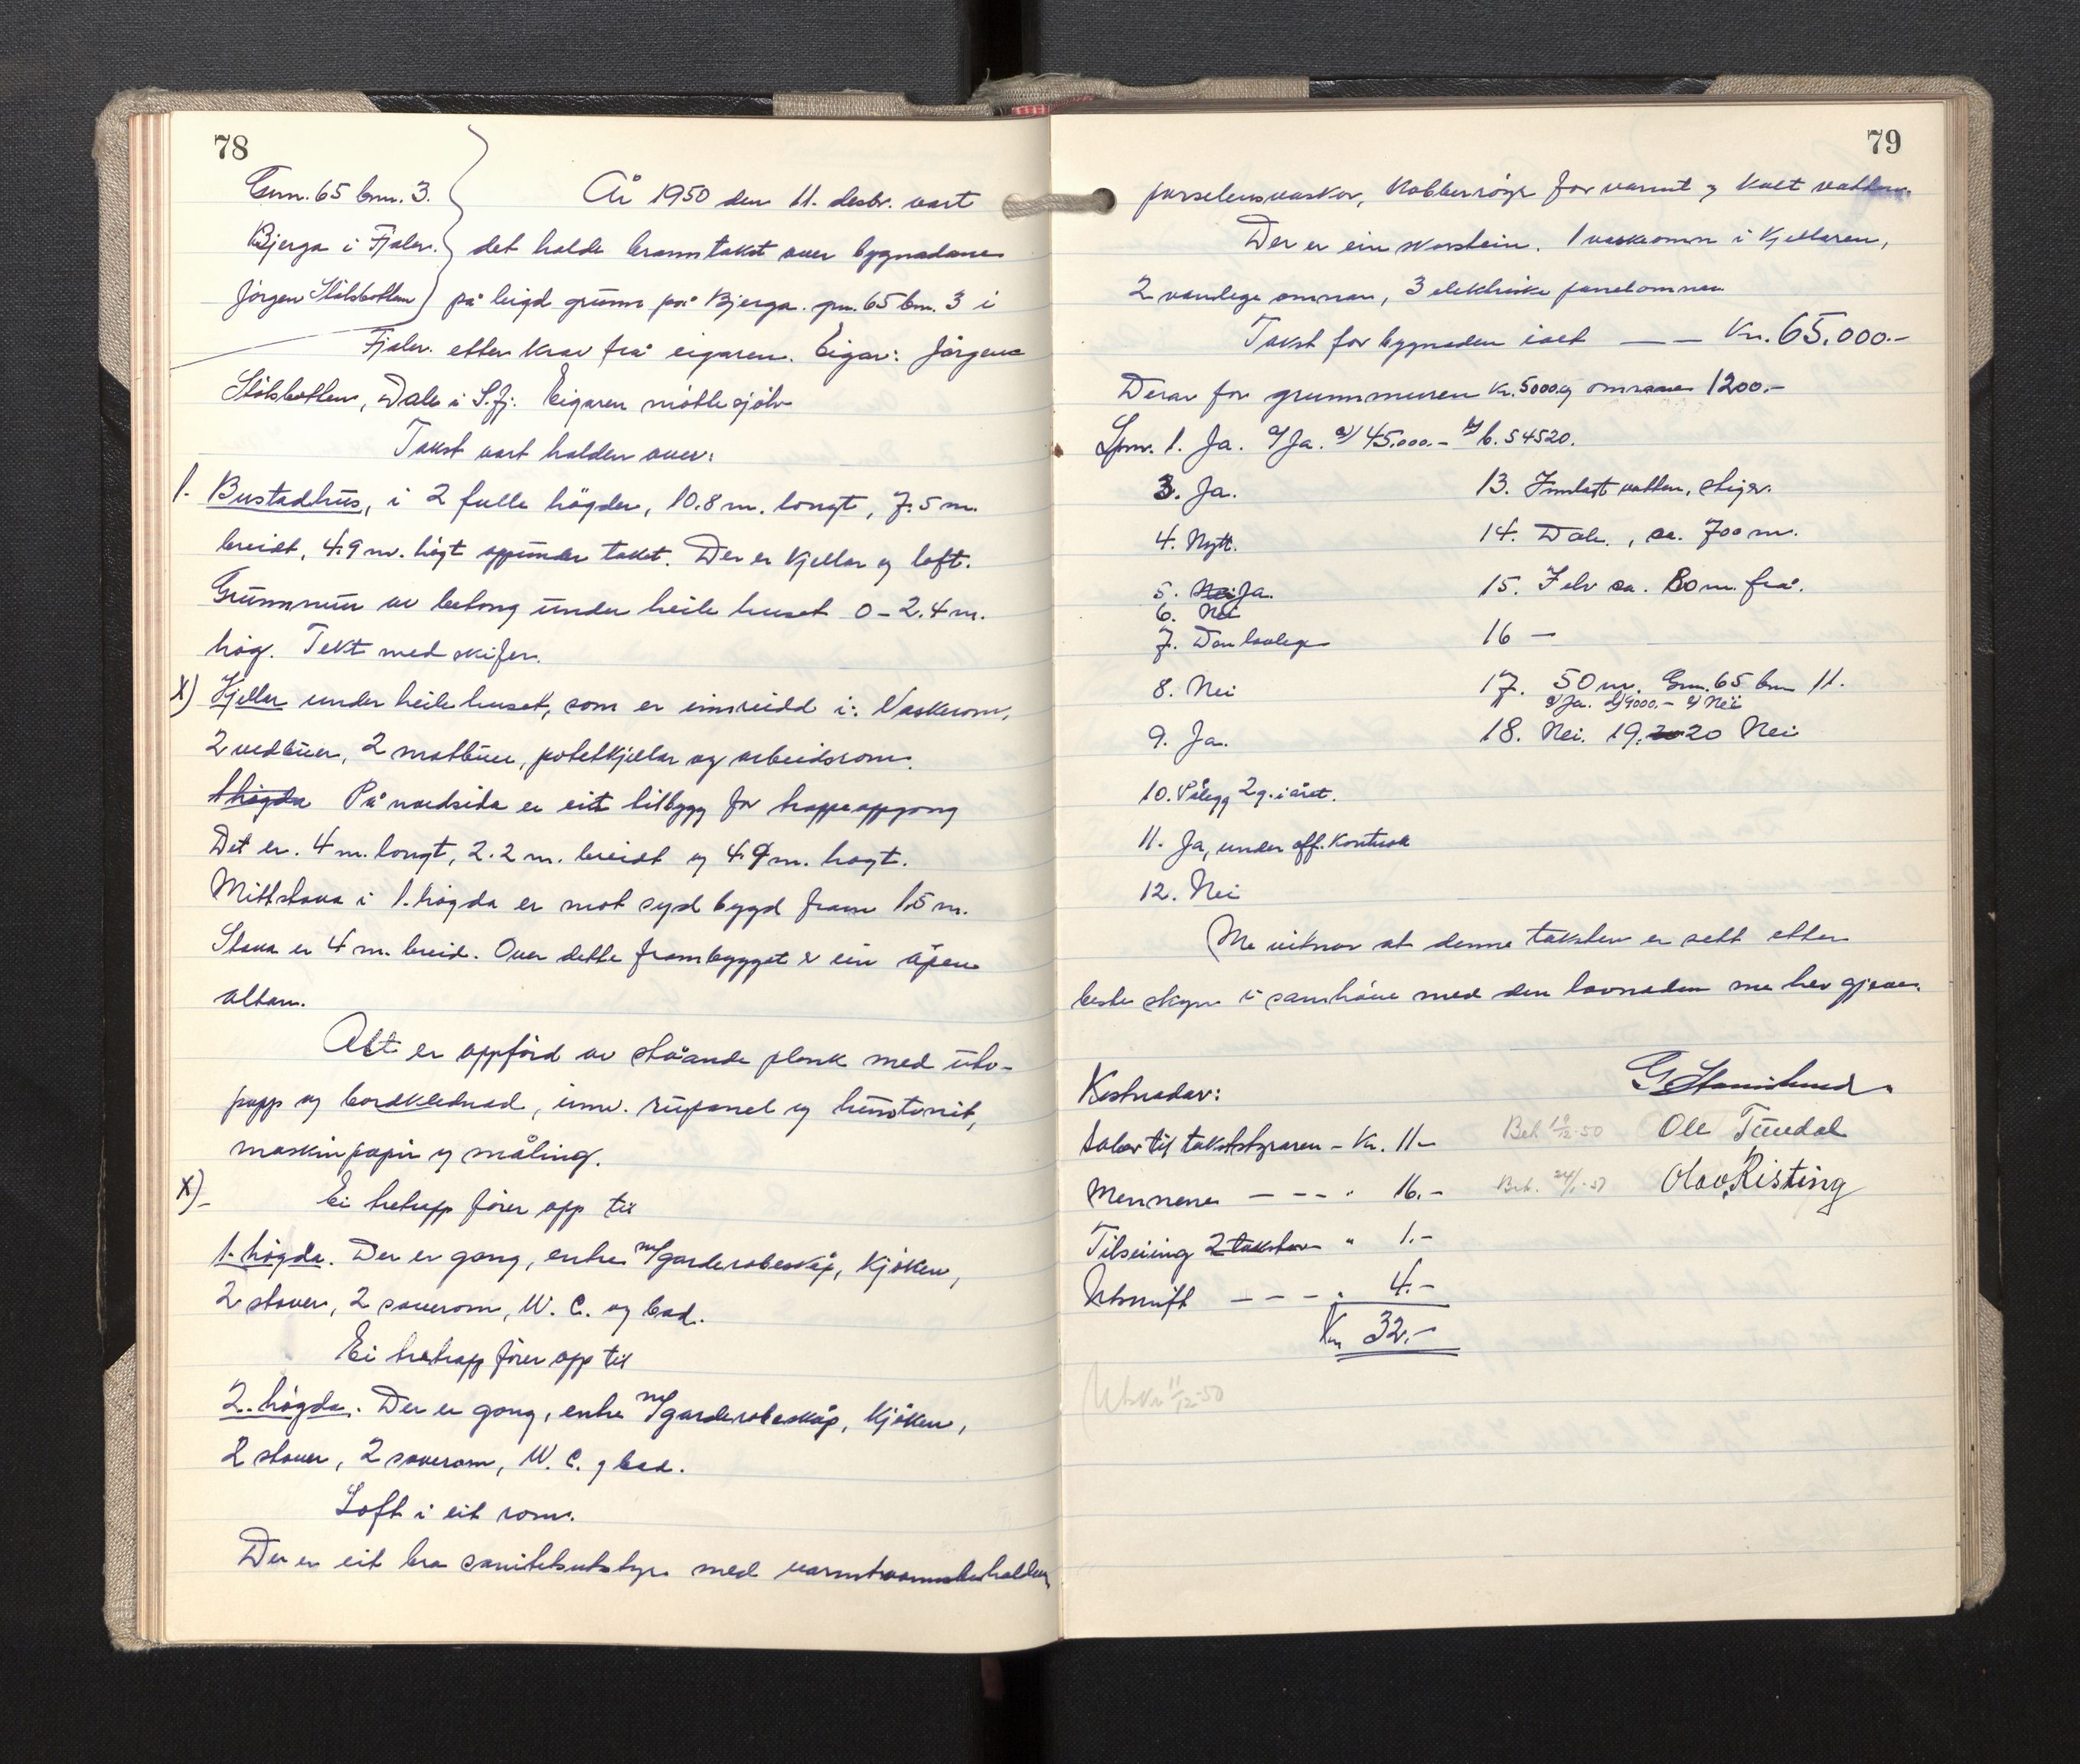 78
Gnr. 65 bnr. 3.
Bjerga i Fjaler.
Jörgen Stölsbotten
År 1950 den 11. desbr. vart
det halde branntakst over bygnadane
på leigd grunn på Bjerga gnr. 65 bnr. 3 i
Fjaler. etter krav frå eigaren. Eigar: Jörgen
Stölsbotten, Dale i S.fj. Eigaren møtte sjölv
Takst vart halden over:
1. Bustadhus, i 2 fulle högder, 10.8 m. langt, 7.5 m.
breidt, 4.9 m. högt oppunder taket. Der er kjellar og loft.
Grunnmur av betong under heile huset 0-2.4 m.
høg. Tekt med skifer.
X) Kjellar under heile huset, som er innreidd i: Vaskerom,
2 vedbuer, 2 matbuer, potetkjellar og arbeidsrom.
1 høgda På nordsida er eit tilbygg for trappeoppgang
Det er. 4 m. langt, 2.2 m. breidt og 4.9 m. høgt.
Midtstova i 1. høgda er mot syd bygd fram 1.5 m.
Stova er 4 m. breid. Over dette frambygget er ein åpen
altan.
Alt er oppförd av ståande plank med utv.
papp og bordklednad, innv. rupanel og huntonit,
maskinpapir og måling.
X)- Ei tretrapp förer opp til
1. högda. Der er gang, entre m/garderobeskåp, kjöken,
2 stover, 2 soverom, W. C. og bad.
Ei tretrapp förer opp til
2. högda. Der er gang, entre m/garderobeskåp, kjöken,
2 stover, 2 soverom, W. C. og bad.
Loft i eit rom.
Der er eit bra sanitetsutstyr med varmtvannsbeholder,
79
porselensvasker, kobberrøyr for varmt og kalt vatten.
Der er ein skorstein. 1 vaskeomn i kjellaren,
2 vanlege omnar, 3 elektriske panelomnar
Takst for bygnaden ialt — — Kr. 65.000.-
Derav for grunnmuren kr. 5000 og omnane 1200.-
Spm. 1. Ja. 2/ Ja. a) 45.000.- b) b. 54520.
3. Ja.
4. Nytt.
5. Nei Ja.
6. Nei
7. Vanlege
8. Nei
9. Ja.
10. Pålegg 2 g. i året.
11. Ja, under off. kontroll
12. Nei
13. Innlagt vatten, stiger.
14. Dale, ca. 700 m.
15. I elv ca. 80 m. frå.
16 —
17. 50 m. Gnr. 65 bnr 11.
a) Ja. b) 9000.- c) Nei
18. Nei. 19. 20 20 Nei
Me vitnar at denne taksten er sett etter
beste skyn i samhöve med den lovnaden me hev gjeve.
Kostnadar:
Salær til takststyraren - Kr. 11.-
Bet 19/12-50
Mennene — — — " 16.-
Bet. 24/1-51
Tilseiing 2 takstar " 1.-
Utskrift — — — " 4.-
Kr 32.-
Ole Tuedal
Olav Risting
Utskr 11/12-50